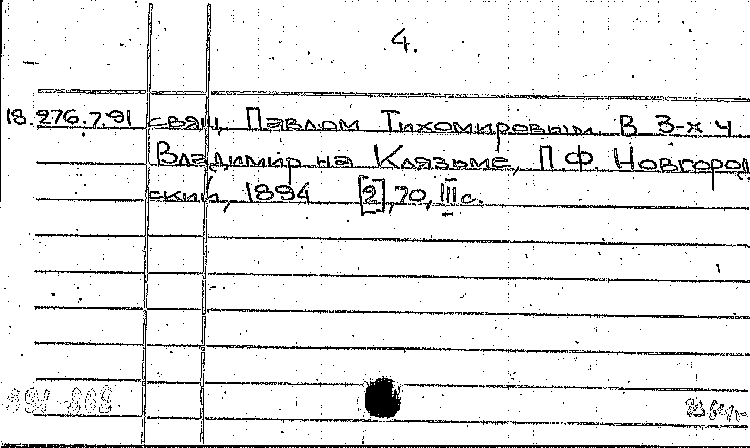 4.
18.276.7.91 свящ. Павлом Тихомировым. В 3-х ч.
Владимир на Клязьме, П.Ф. Новгород
ский, 1894 [2], 70, III с.